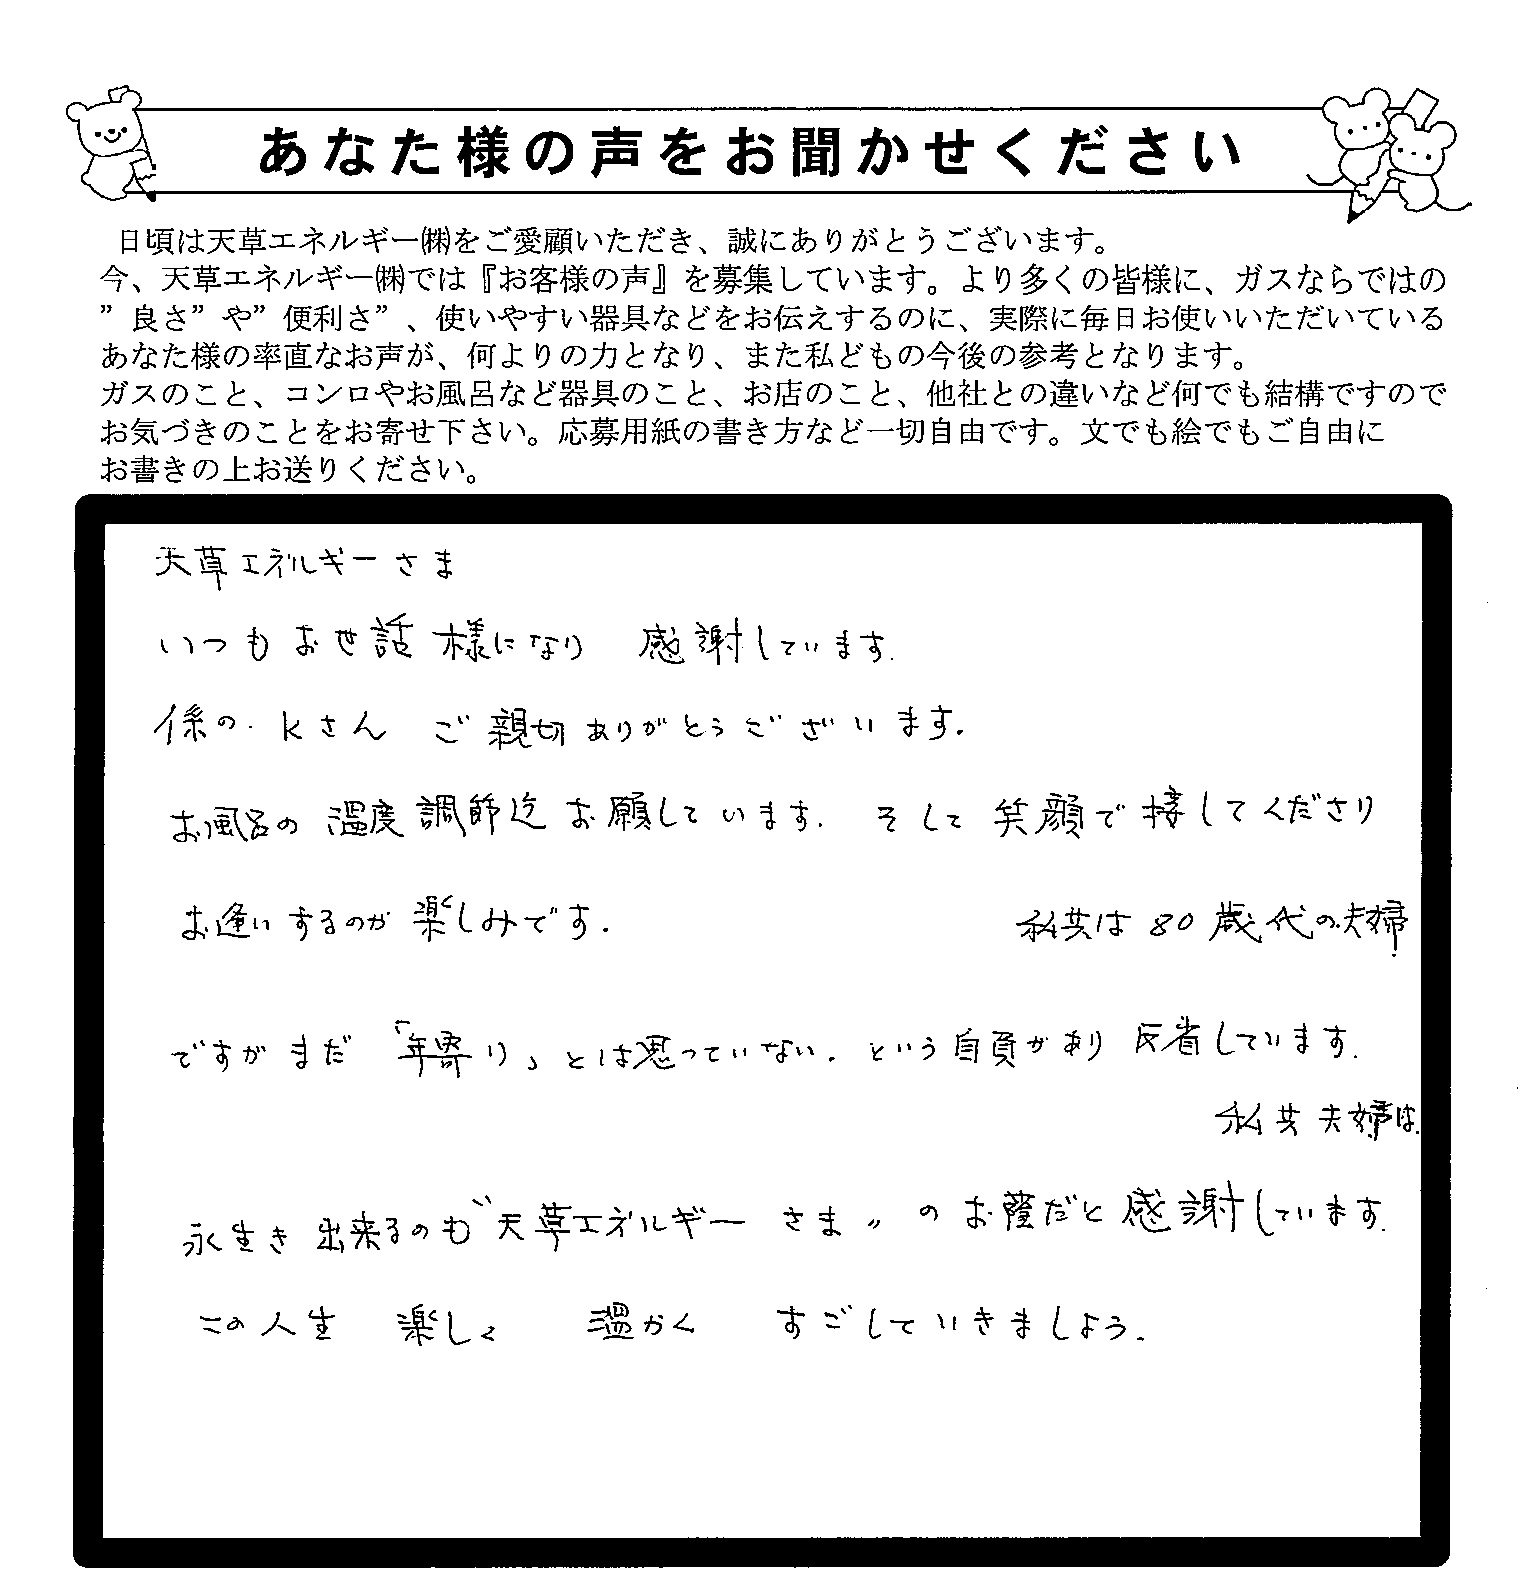 あなた様の声をお聞かせください
日頃は天草エネルギー㈱をご愛顧いただき、誠にありがとうございます。
今、天草エネルギー㈱では『お客様の声』を募集しています。より多くの皆様に、ガスならではの
”良さ”や”便利さ”、使いやすい器具などをお伝えするのに、実際に毎日お使いいただいている
あなた様の率直なお声が、何よりの力となり、また私どもの今後の参考となります。
ガスのこと、コンロやお風呂など器具のこと、お店のこと、他社との違いなど何でも結構ですので
お気づきのことをお寄せ下さい。応募用紙の書き方など一切自由です。文でも絵でもご自由に
お書きの上お送りください。
天草エネルギーさま
いつもお世話様になり 感謝しています.
係の. Kさん ご親切ありがとうございます.
お風呂の温度調節迄お願しています. そして笑顔で接してくださり
お逢いするのが楽しみです.
私共は80歳代の夫婦
ですがまだ「年寄り」とは思っていない.という自負があり反省しています.
私共夫婦は.
永生き出来るのも〝天草エネルギーさま〃のお蔭だと感謝しています.
この人生 楽しく 温かく すごしていきましょう.